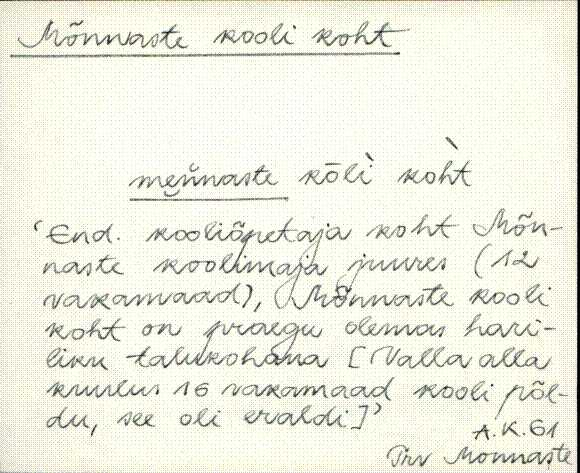 Mõnnaste kooli koht
men̆naste kōlì kòht
‘End. kooliõpetaja koht Mõn-
naste koolimaja juures (12
vakamaad), Mõnnaste kooli
koht on praegu olemas hari-
liku talukohana [Valla alla
kuulus 16 vakamaad kooli põl-
du, see oli eraldi]’
A.K. 61
Trv Mõnnaste